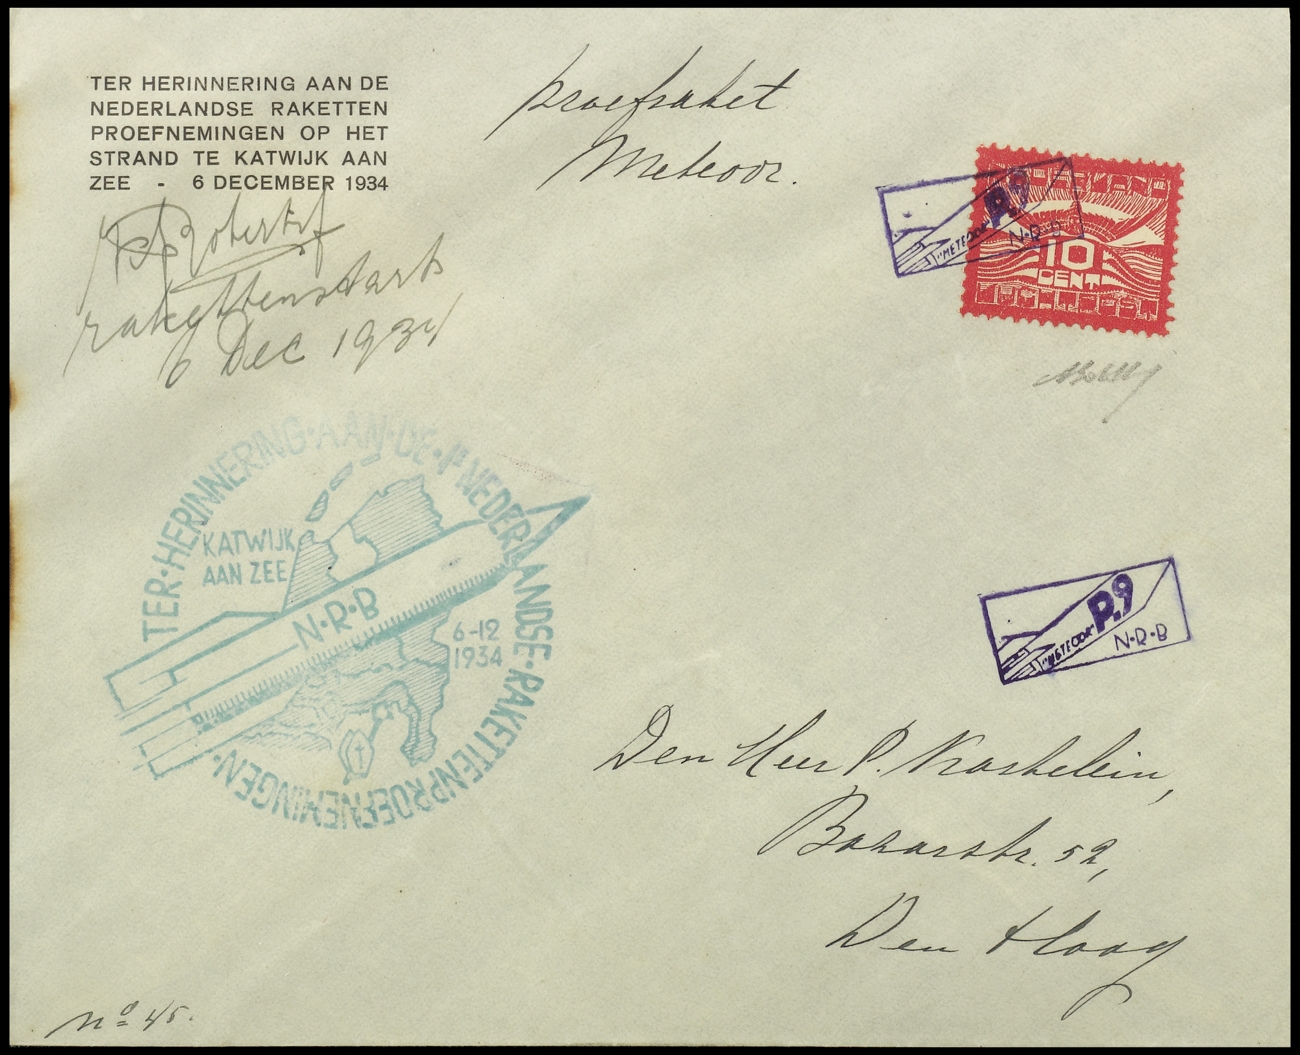 TER HERINNERING AAN DE
NEDERLANDSE RAKETTEN
PROEFNEMINGEN OP HET
STRAND TE KATWIJK AAN
ZEE - 6 DECEMBER 1934
Robertí
rakettenstart
6 Dec 1934
proefraket
Meteoor.
"METEOOR" P.9
N·R·B
10
CENT
TER·HERINNERING·AAN·DE·1e NEDERLANDSE·RAKETTENPROEFNEMINGEN·
KATWIJK
AAN ZEE
N·R·B
6-12
1934
"METEOOR" P.9
N·R·B
Den Heer P. Kastelein,
Bazarstr. 52,
Den Haag
No 45.